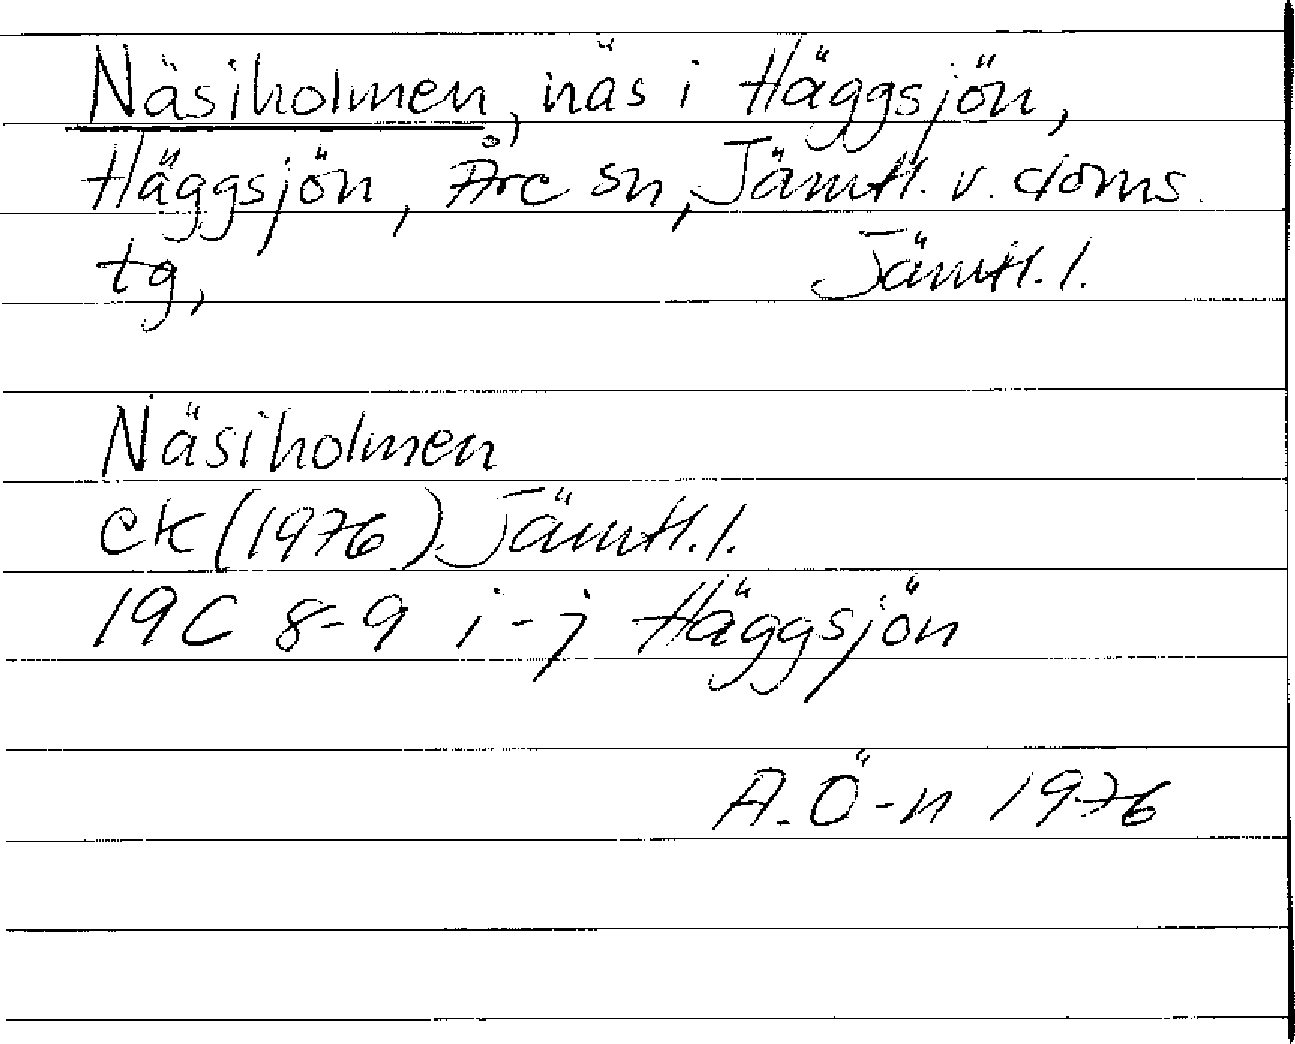 Näsiholmen, näs i Häggsjön,
Häggsjön, Åre sn, Jämtl. v. doms.
tg, Jämtl. l.
Näsiholmen
ek (1976) Jämtl. l.
19C 8-9 i-j Häggsjön
A. Ö-n 1976